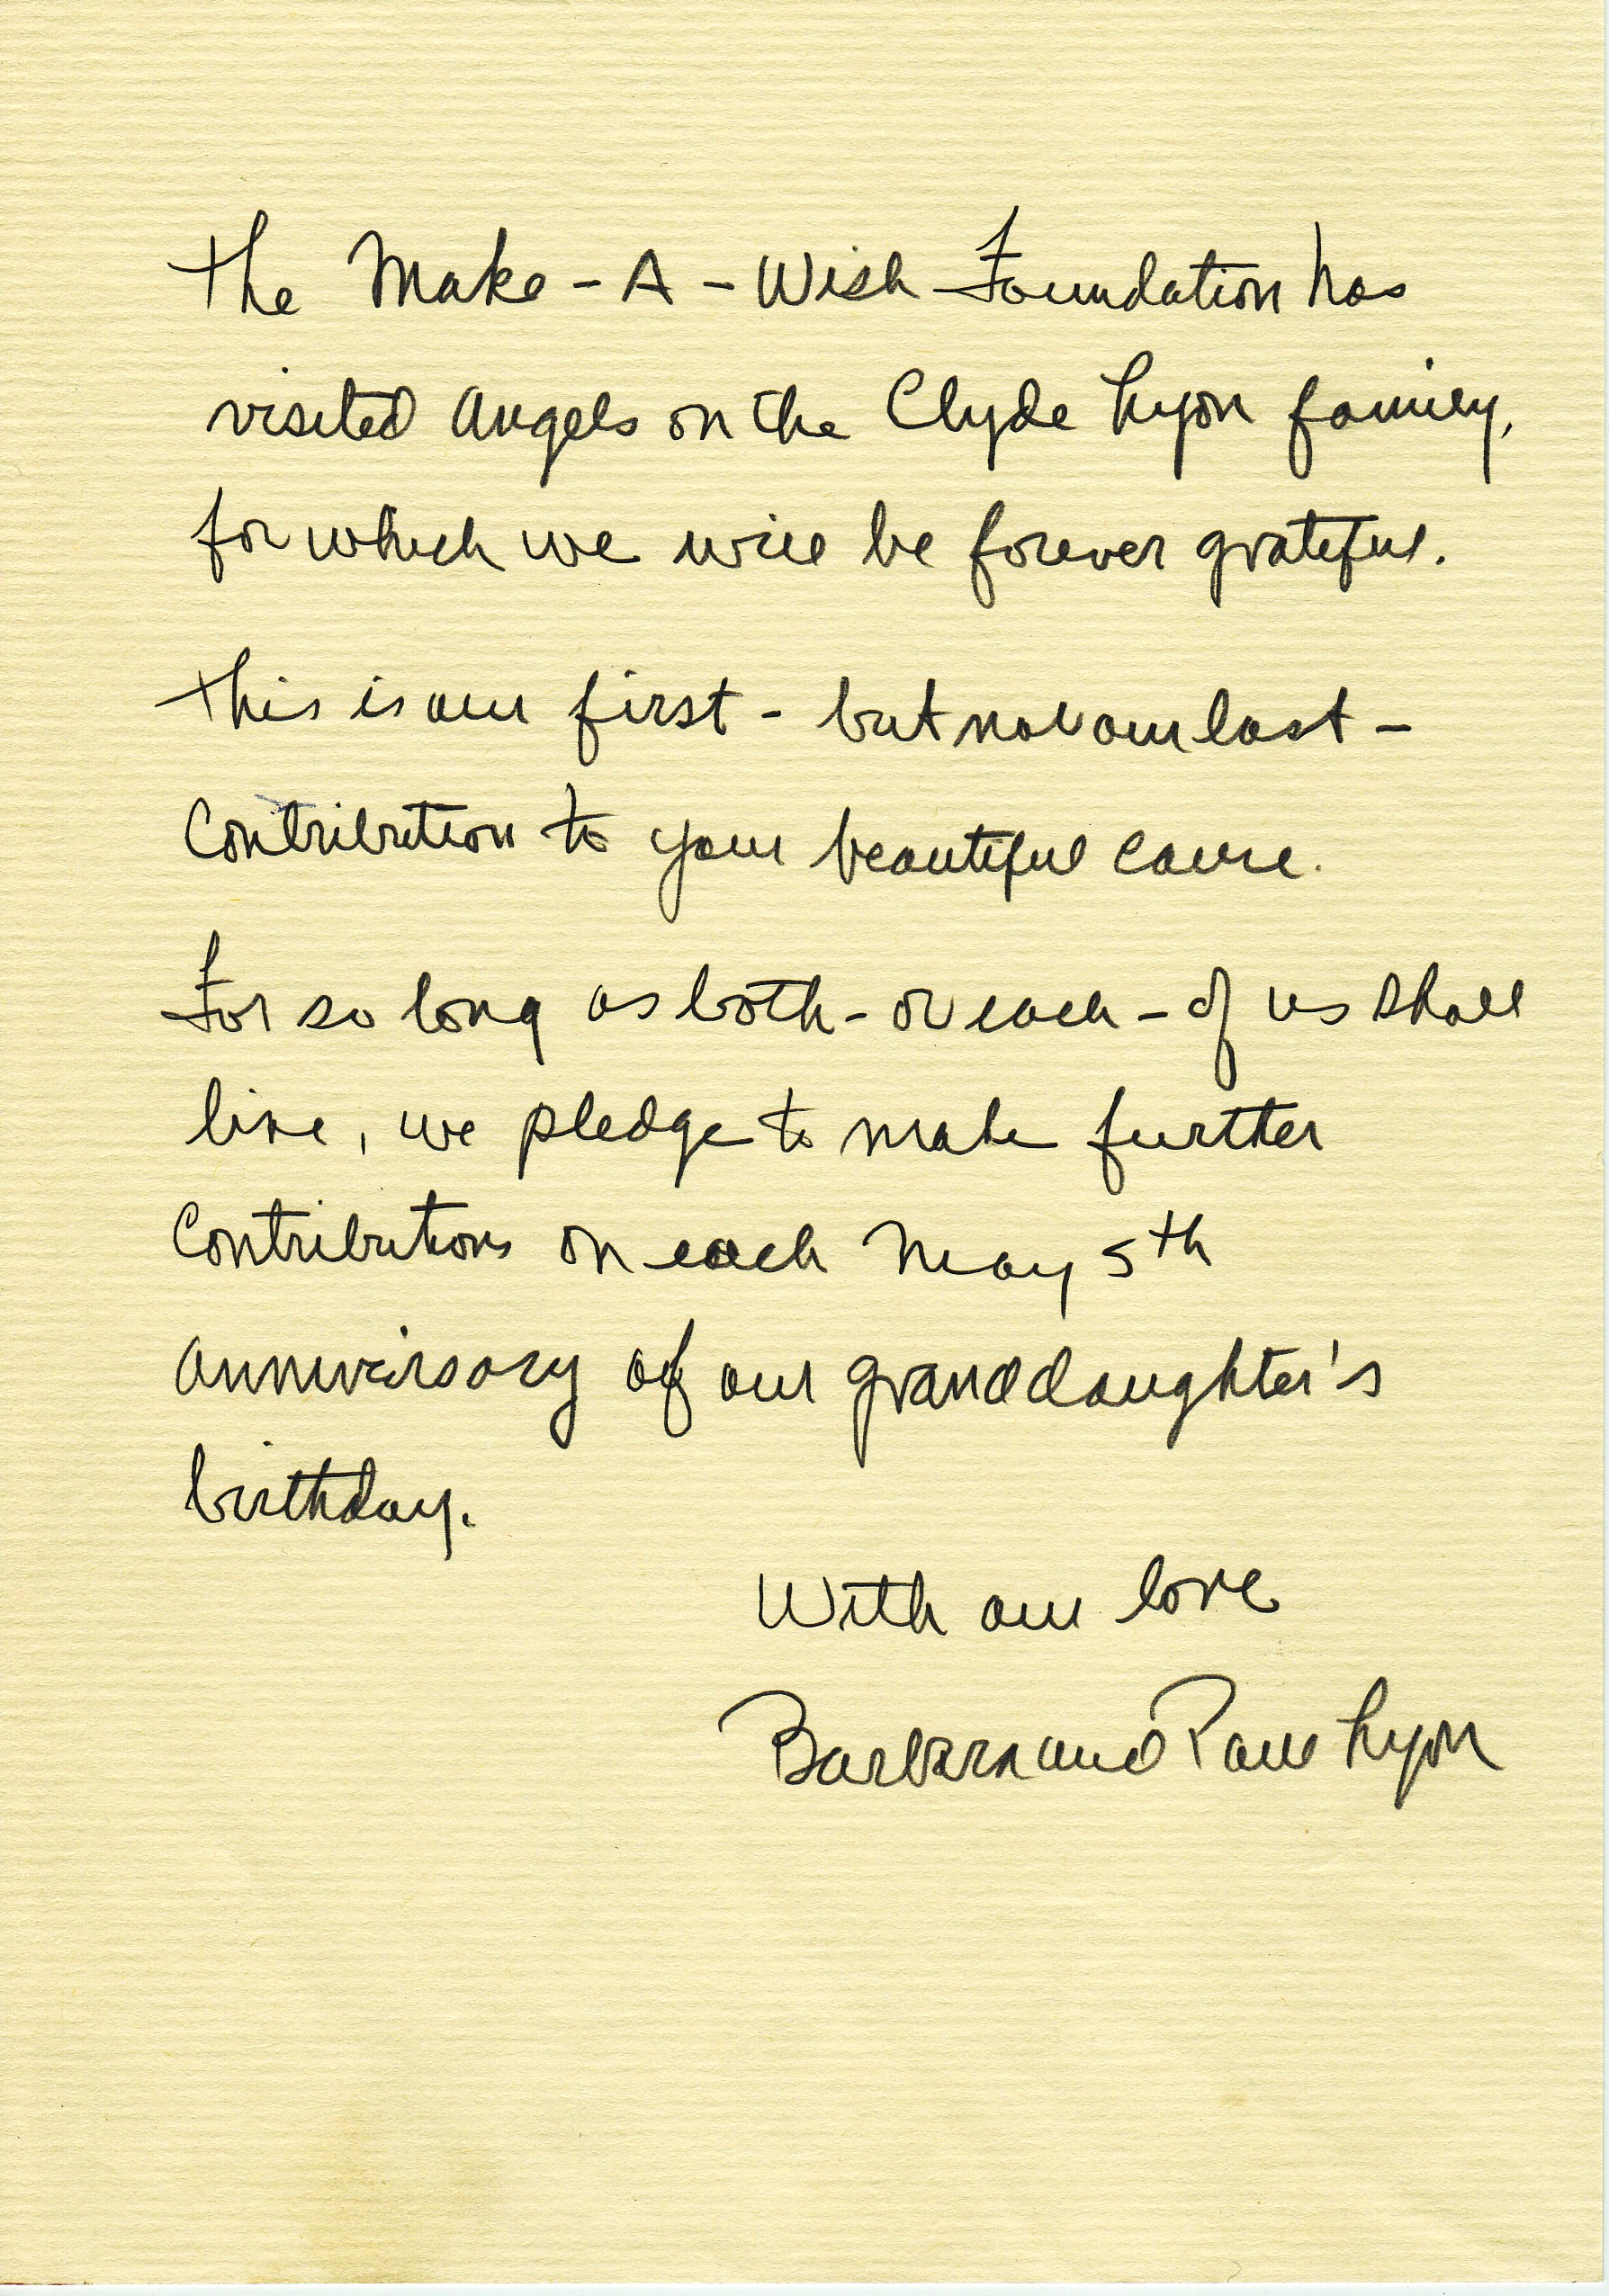 The Make-A-Wish Foundation has
visited Angels on the Clyde Lyon family,
for which we will be forever grateful.
This is our first - but not our last -
Contribution to your beautiful cause.
For so long as both - or each - of us shall
live, we pledge to make further
Contributions on each May 5th
anniversary of our granddaughter's
birthday.
With our love
Barbara and Paul Lyon